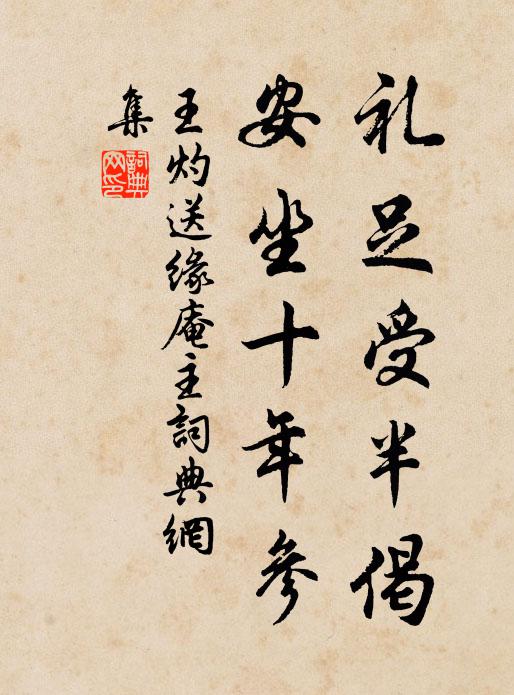 礼足受半偈
安坐十年参
王灼送緣庵主詞典網
集
詞典网印